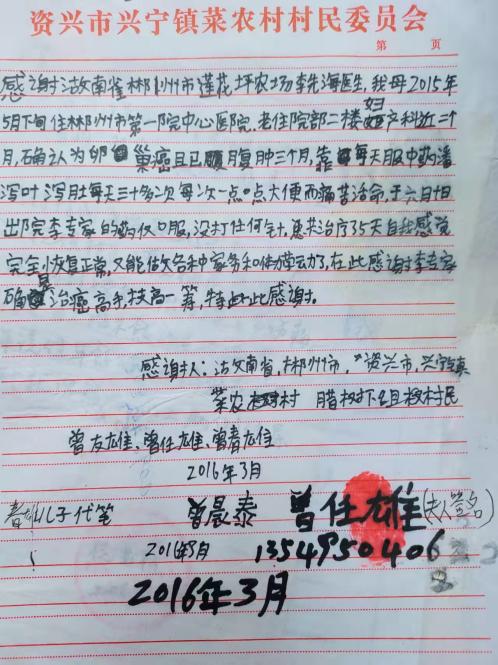 资兴市兴宁镇菜农村村民委员会
第 页
感谢湖南省郴州市莲花坪农场李先海医生,我母2015年
5月下旬住郴州市第一院中心医院.老住院部二楼妇产科近二个
月,确认为卵巢癌且已腹腹肿三个月,靠每天服中药潘
泻叶泻肚每天三十多次每次一点点大便而痛苦活命,于六月十日
出院李专家的药仅口服,没打任何针,患共治疗35天自我感觉
完全恢复正常,又能做各种家务和体力劳动了,在此感谢李专家
确是治癌高手,技高一筹,特此感谢。
感谢人:湖南省,郴州市,资兴市,兴宁镇
菜农村 腊树下组村民
曾友雄、曾任雄、曾春雄
2016年3月
儿子代笔 曾晨泰 曾任雄(夫人签名)
2016年3月 13549950406
2016年3月